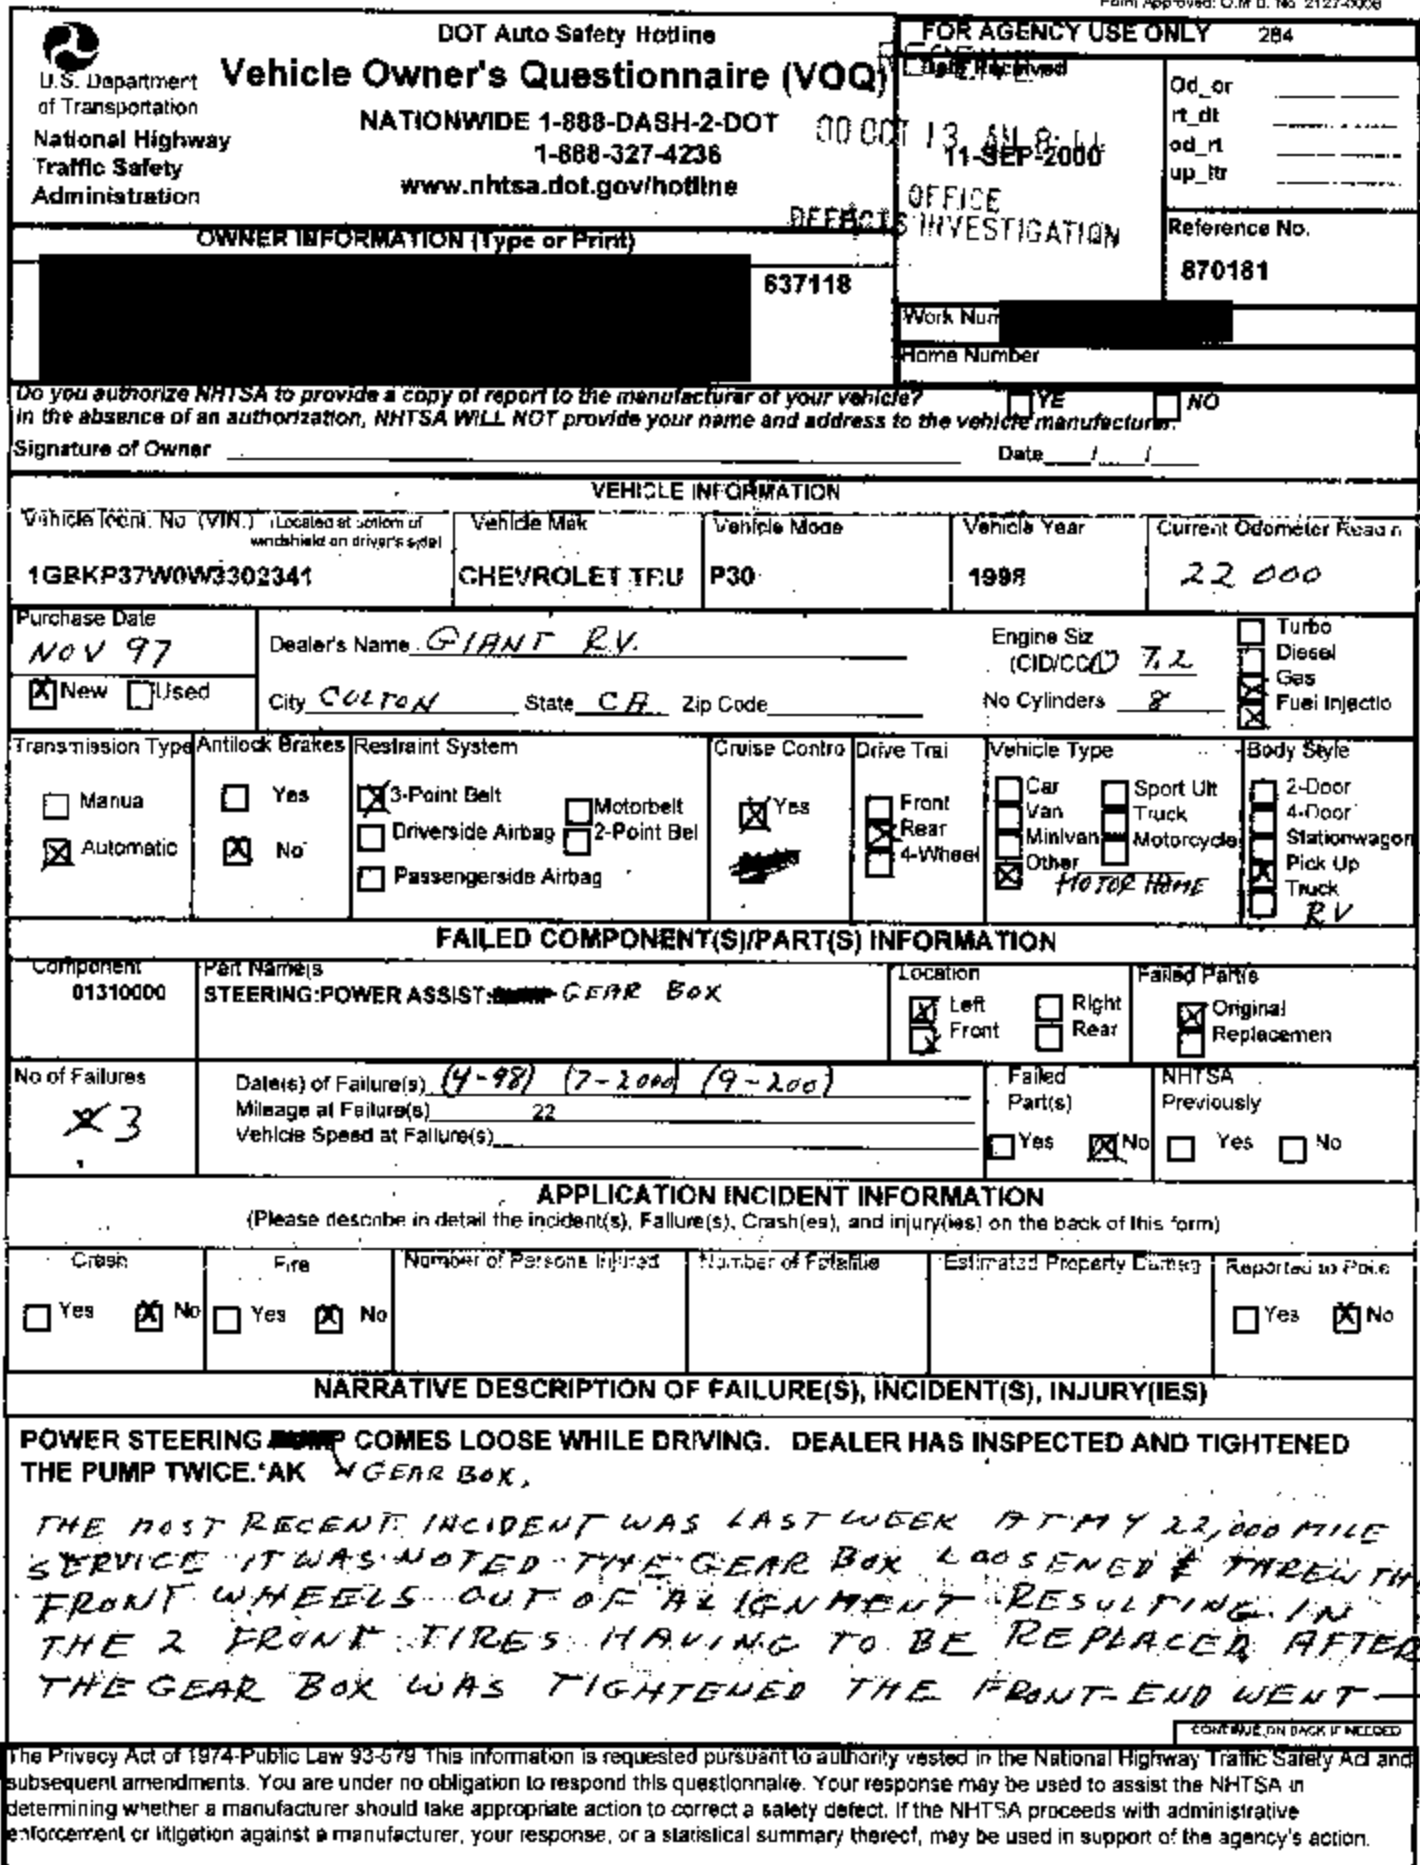 Form Approved: O.M.B. No. 2127-0008
DOT Auto Safety Hotline
FOR AGENCY USE ONLY 284
U.S. Department
of Transportation
National Highway
Traffic Safety
Administration
Vehicle Owner's Questionnaire (VOQ)
NATIONWIDE 1-888-DASH-2-DOT
1-888-327-4236
www.nhtsa.dot.gov/hotline
Date Received
00 OCT 13 AM 8:
11-SEP-2000
OFFICE
DEFECTS INVESTIGATION
Od_or
rt_dt
od_rt
up_ltr
Reference No.
870181
OWNER INFORMATION (Type or Print)
637118
Work Num
Home Number
Do you authorize NHTSA to provide a copy of report to the manufacturer of your vehicle? YE NO
In the absence of an authorization, NHTSA WILL NOT provide your name and address to the vehicle manufacturer.
Signature of Owner Date / /
VEHICLE INFORMATION
Vehicle Ident. No. (VIN.) (Located at bottom of windshield on driver's side) Vehicle Mak Vehicle Mode Vehicle Year Current Odometer Readin
1GBKP37W0W3302341 CHEVROLET TRU P30 1998 22 000
Purchase Date
NOV 97
New Used
Dealer's Name GIANT R.V.
City COLTON State CA Zip Code
Engine Siz
(CID/CC/L) 7.2
No Cylinders 8
Turbo
Diesel
Gas
Fuel Injectio
Transmission Type Antilock Brakes Restraint System Cruise Contro Drive Trai Vehicle Type Body Style
Manua
Automatic
Yes
No
3-Point Belt
Driverside Airbag
Passengerside Airbag
Motorbelt
2-Point Bel
Yes
Front
Rear
4-Wheel
Car
Van
Minivan
Other MOTOR HOME
Sport Ult
Truck
Motorcycle
2-Door
4-Door
Stationwagon
Pick Up
Truck
RV
FAILED COMPONENT(S)/PART(S) INFORMATION
Component Part Name/s Location Failed Part/s
01310000 STEERING:POWER ASSIST: GEAR BOX
Left Right
Front Rear
Original
Replacemen
No of Failures
3
Date(s) of Failure(s) (4-98) (7-2000) (9-200)
Mileage at Failure(s) 22
Vehicle Speed at Failure(s)
Failed
Part(s)
Yes No
NHTSA
Previously
Yes No
APPLICATION INCIDENT INFORMATION
(Please describe in detail the incident(s), Failure(s), Crash(es), and injury(ies) on the back of this form)
Crash Fire Number of Persons Injured Number of Fatalitie Estimated Property Damag Reported to Polie
Yes No Yes No Yes No
NARRATIVE DESCRIPTION OF FAILURE(S), INCIDENT(S), INJURY(IES)
POWER STEERING PUMP COMES LOOSE WHILE DRIVING. DEALER HAS INSPECTED AND TIGHTENED
THE PUMP TWICE.*AK GEAR BOX,
THE MOST RECENT INCIDENT WAS LAST WEEK AT MY 22,000 MILE
SERVICE IT WAS NOTED THE GEAR BOX LOOSENED & THREW TH
FRONT WHEELS OUT OF ALIGNMENT RESULTING IN
THE 2 FRONT TIRES HAVING TO BE REPLACED AFTER
THE GEAR BOX WAS TIGHTENED THE FRONT-END WENT —
CONTINUE ON BACK IF NEEDED
The Privacy Act of 1974-Public Law 93-579 This information is requested pursuant to authority vested in the National Highway Traffic Safety Act and
subsequent amendments. You are under no obligation to respond this questionnaire. Your response may be used to assist the NHTSA in
determining whether a manufacturer should take appropriate action to correct a safety defect. If the NHTSA proceeds with administrative
enforcement or litigation against a manufacturer, your response, or a statistical summary thereof, may be used in support of the agency's action.